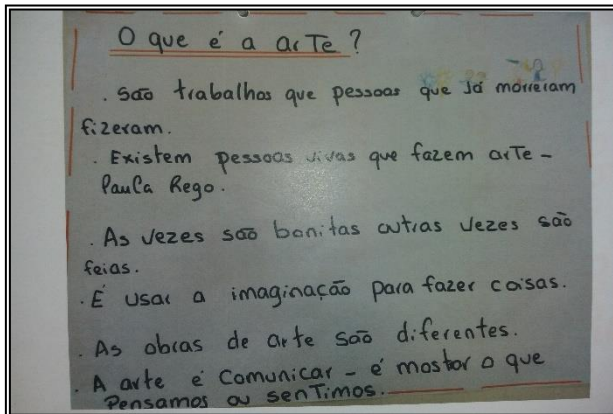 O que é a arTe?
. São trabalhos que pessoas que Já morreram
fizeram.
. Existem pessoas vivas que fazem arTe -
Paula Rego.
. As vezes são bonitas outras vezes são
feias.
. É usar a imaginação para fazer coisas.
. As obras de arte são diferentes.
. A arte é Comunicar - é mostor o que
Pensamos ou senTimos.